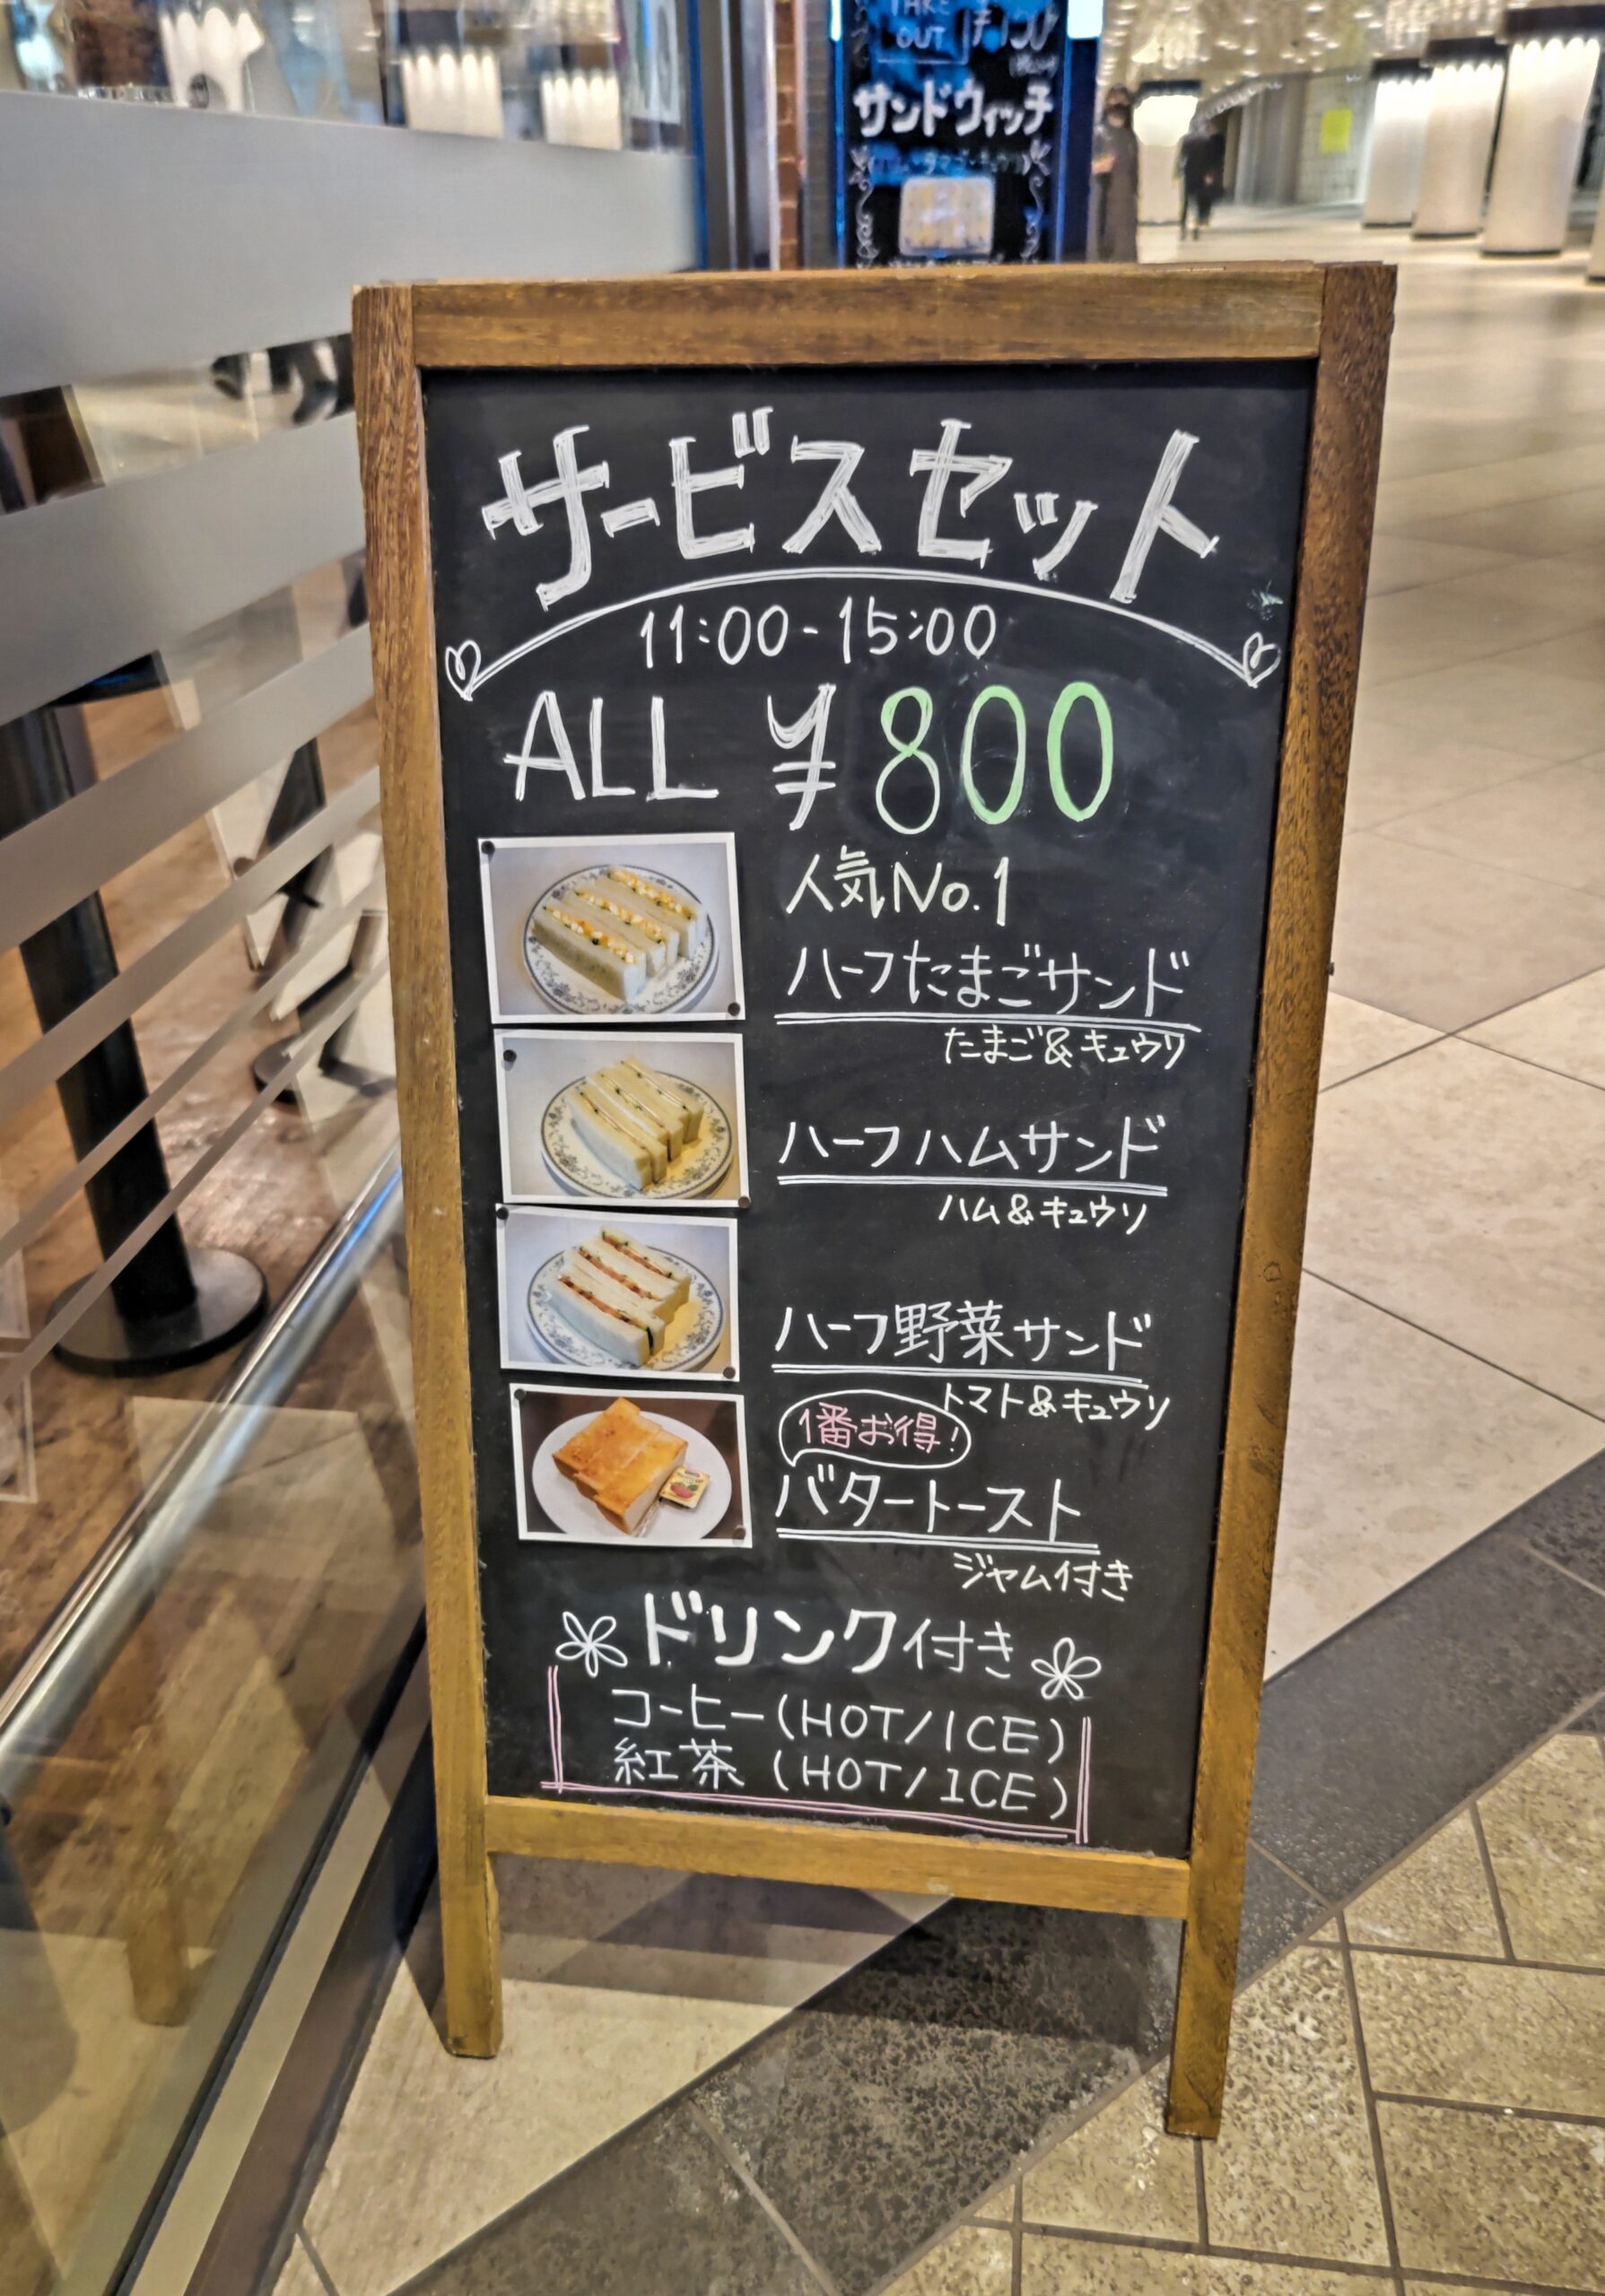 TAKE
OUT
サンドウィッチ
サービスセット
11:00-15:00
ALL ¥800
人気No.1
ハーフたまごサンド
たまご&キュウリ
ハーフハムサンド
ハム&キュウリ
ハーフ野菜サンド
トマト&キュウリ
1番お得!
バタートースト
ジャム付き
ドリンク付き
コーヒー(HOT/ICE)
紅茶(HOT/ICE)